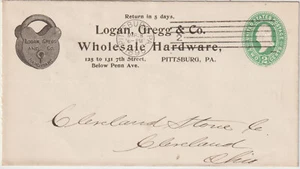 Return in 5 days.
Logan, Gregg & Co.
Wholesale Hardware,
125 to 131 7th Street,
Below Penn Ave.
PITTSBURG, PA.
LOGAN, GREGG
AND CO.
2
Cleveland Stone Co
Cleveland
Ohio